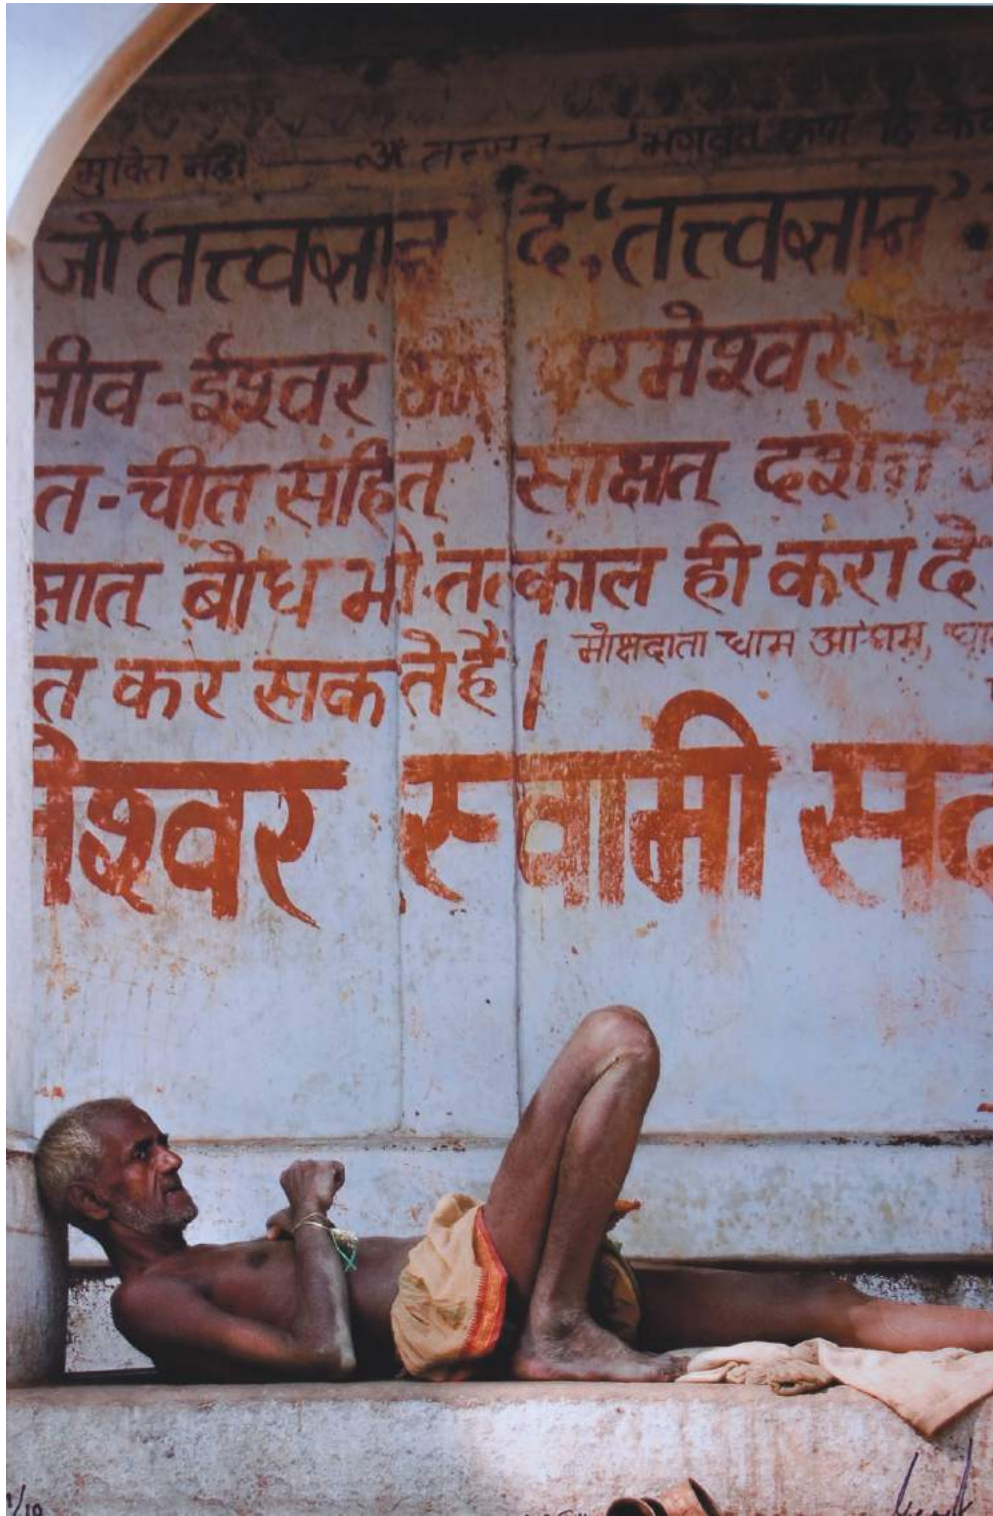 मुक्ति नहीं — ॐ तत्सत — भगवत् कृपा हि
जो 'तत्त्वज्ञान दे, 'तत्त्वज्ञान'
जीव-ईश्वर और परमेश्वर
त-चीत सहित् साक्षत् दर्शन
क्षात् बोध भी तत्काल ही करा दे
त कर सकते हैं। मोक्षदाता धाम आश्रम,
मेश्वर स्वामी सद
1/10